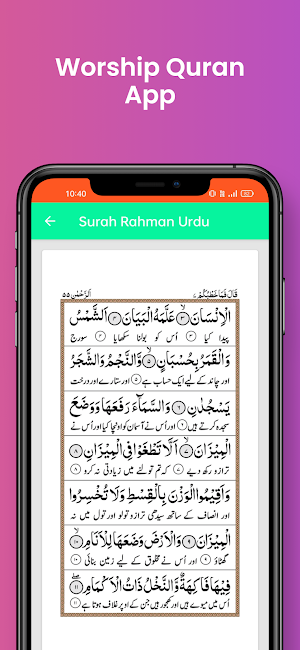 Worship Quran
App
10:40
Surah Rahman Urdu
قَالَ فَمَا خَطْبُكُمْ ٢٧ اَلرَّحْمٰن ٥٥
الْاِنْسَانَ ﴿٣﴾ عَلَّمَهُ الْبَيَانَ ﴿٤﴾ اَلشَّمْسُ
پیدا کیا ٣ اُس کو بولنا سکھایا ٤ سورج
وَالْقَمَرُ بِحُسْبَانٍ ﴿٥﴾ وَّالنَّجْمُ وَالشَّجَرُ
اور چاند کے لیے ایک حساب ہے ٥ اور ستارے اور درخت
يَسْجُدٰنِ ﴿٦﴾ وَالسَّمَآءَ رَفَعَهَا وَوَضَعَ
سجدہ کرتے ہیں ٦ اور اُس نے آسمان کو اونچا کیا اور اُس نے
الْمِيْزَانَ ﴿٧﴾ اَلَّا تَطْغَوْا فِي الْمِيْزَانِ ﴿٨﴾
ترازو رکھ دیے ٧ کہ تم تولنے میں زیادتی نہ کرو ٨
وَاَقِيْمُوا الْوَزْنَ بِالْقِسْطِ وَلَا تُخْسِرُوا
اور انصاف کے ساتھ سیدھی ترازو تولو اور تول میں نہ
الْمِيْزَانَ ﴿٩﴾ وَالْاَرْضَ وَضَعَهَا لِلْاَنَامِ ﴿١٠﴾
گھٹاؤ ٩ اور اُس نے مخلوق کے لیے زمین بنائی ١٠
فِيْهَا فَاكِهَةٌ وَّالنَّخْلُ ذَاتُ الْاَكْمَامِ ﴿١١﴾
اُس میں میوے ہیں اور کھجور ہیں جن کے اوپر غلاف ہوتا ہے ١١